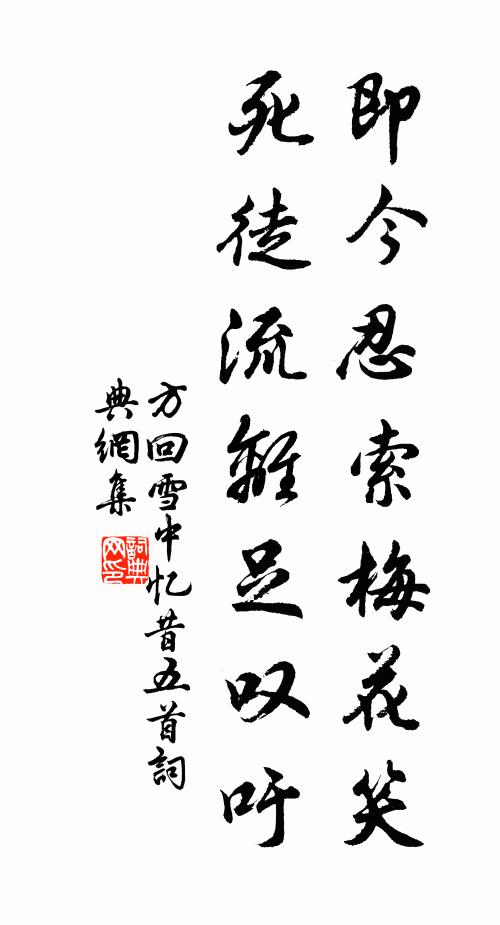 即今忍索梅花笑
死徒流離足叹吁
方回雪中忆昔五首詞
典網集
詞典
网印